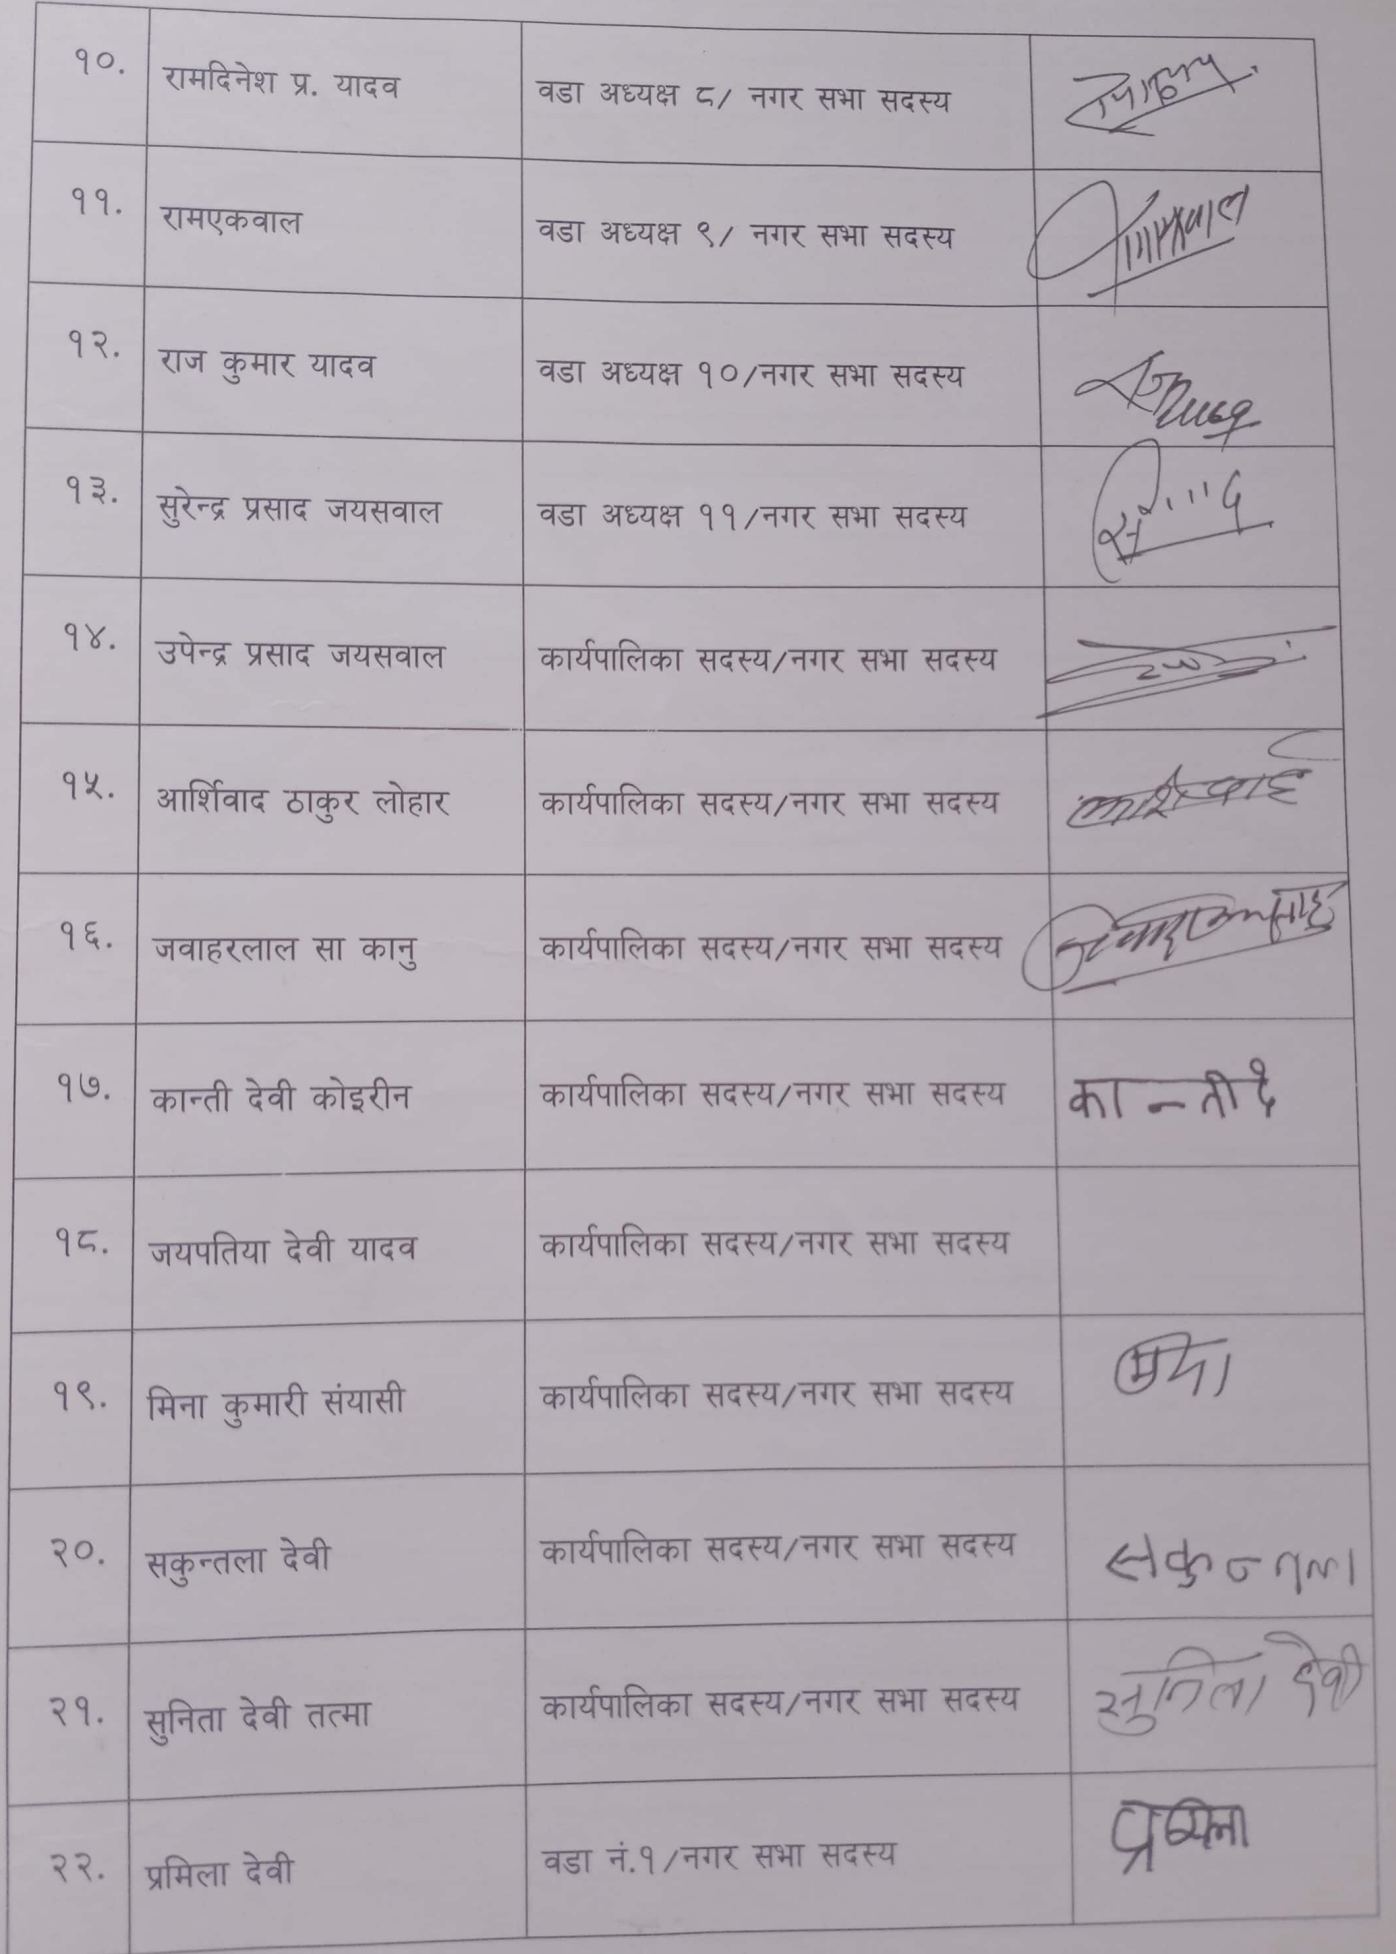 १०. रामदिनेश प्र. यादव वडा अध्यक्ष ८/ नगर सभा सदस्य
११. रामएकवाल वडा अध्यक्ष ९/ नगर सभा सदस्य
१२. राज कुमार यादव वडा अध्यक्ष १०/नगर सभा सदस्य
१३. सुरेन्द्र प्रसाद जयसवाल वडा अध्यक्ष ११/नगर सभा सदस्य
१४. उपेन्द्र प्रसाद जयसवाल कार्यपालिका सदस्य/नगर सभा सदस्य
१५. आर्शिवाद ठाकुर लोहार कार्यपालिका सदस्य/नगर सभा सदस्य
१६. जवाहरलाल सा कानु कार्यपालिका सदस्य/नगर सभा सदस्य
१७. कान्ती देवी कोइरीन कार्यपालिका सदस्य/नगर सभा सदस्य कान्ती दे
१८. जयपतिया देवी यादव कार्यपालिका सदस्य/नगर सभा सदस्य
१९. मिना कुमारी संयासी कार्यपालिका सदस्य/नगर सभा सदस्य
२०. सकुन्तला देवी कार्यपालिका सदस्य/नगर सभा सदस्य सकुन्तला
२१. सुनिता देवी तत्मा कार्यपालिका सदस्य/नगर सभा सदस्य सुनिता देवी
२२. प्रमिला देवी वडा नं.१/नगर सभा सदस्य प्रमिला